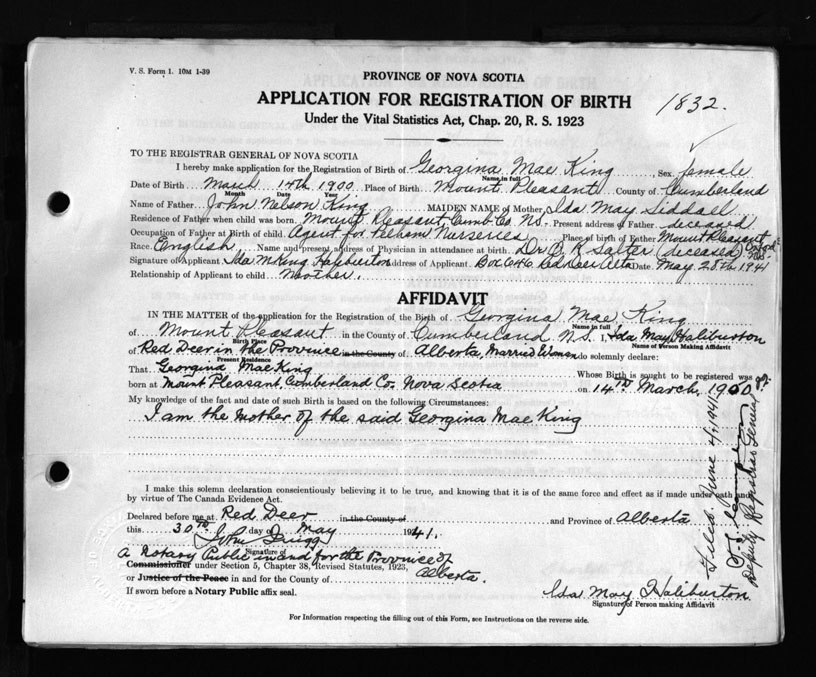 V. S. Form 1. 10M 1-39
PROVINCE OF NOVA SCOTIA
APPLICATION FOR REGISTRATION OF BIRTH
1832.
Under the Vital Statistics Act, Chap. 20, R. S. 1923
TO THE REGISTRAR GENERAL OF NOVA SCOTIA
I hereby make application for the Registration of Birth of Georgina Mae King, Sex female
Name in full
Date of Birth March 14th 1900 Place of Birth Mount Pleasant County of Cumberland
Month Date Year
Name of Father John Nelson King MAIDEN NAME of Mother Ida May Siddall
Residence of Father when child was born. Mount Pleasant Cumb. Co. N.S. Present address of Father deceased
Occupation of Father at Birth of child. Agent for Nurseries Place of birth of Father Mount Pleasant
Race. English Name and present address of Physician in attendance at birth. Dr. Salter (deceased)
Signature of Applicant Ida M King Haliburton Address of Applicant Box 646 Red Deer Alta Date May 28th 1941
Relationship of Applicant to child mother.
AFFIDAVIT
IN THE MATTER of the application for the Registration of Birth of Georgina Mae King
Name in full
of Mount Pleasant in the County of Cumberland N.S. I, Ida May Haliburton
Birth Place Name of Person Making Affidavit
of Red Deer in the Province in the County of Alberta, Married Woman do solemnly declare:
Present Residence
That Georgina Mae King Whose Birth is sought to be registered was
born at Mount Pleasant, Cumberland Co. Nova Scotia on 14th March, 1900
My knowledge of the fact and date of such Birth is based on the following Circumstances:
I am the mother of the said Georgina Mae King
I make this solemn declaration conscientiously believing it to be true, and knowing that it is of the same force and effect as if made under oath and
by virtue of The Canada Evidence Act.
Declared before me at Red Deer in the County of and Province of Alberta
this 30th day of May 1941.
John
Signature of
A Notary Public in and for the Province of
Commissioner under Section 5, Chapter 38, Revised Statutes, 1923, Alberta.
or Justice of the Peace in and for the County of
If sworn before a Notary Public affix seal.
Ida May Haliburton
Signature of Person making Affidavit
For Information respecting the filling out of this Form, see Instructions on the reverse side.
Filed June 4, 1941
Deputy Registrar General